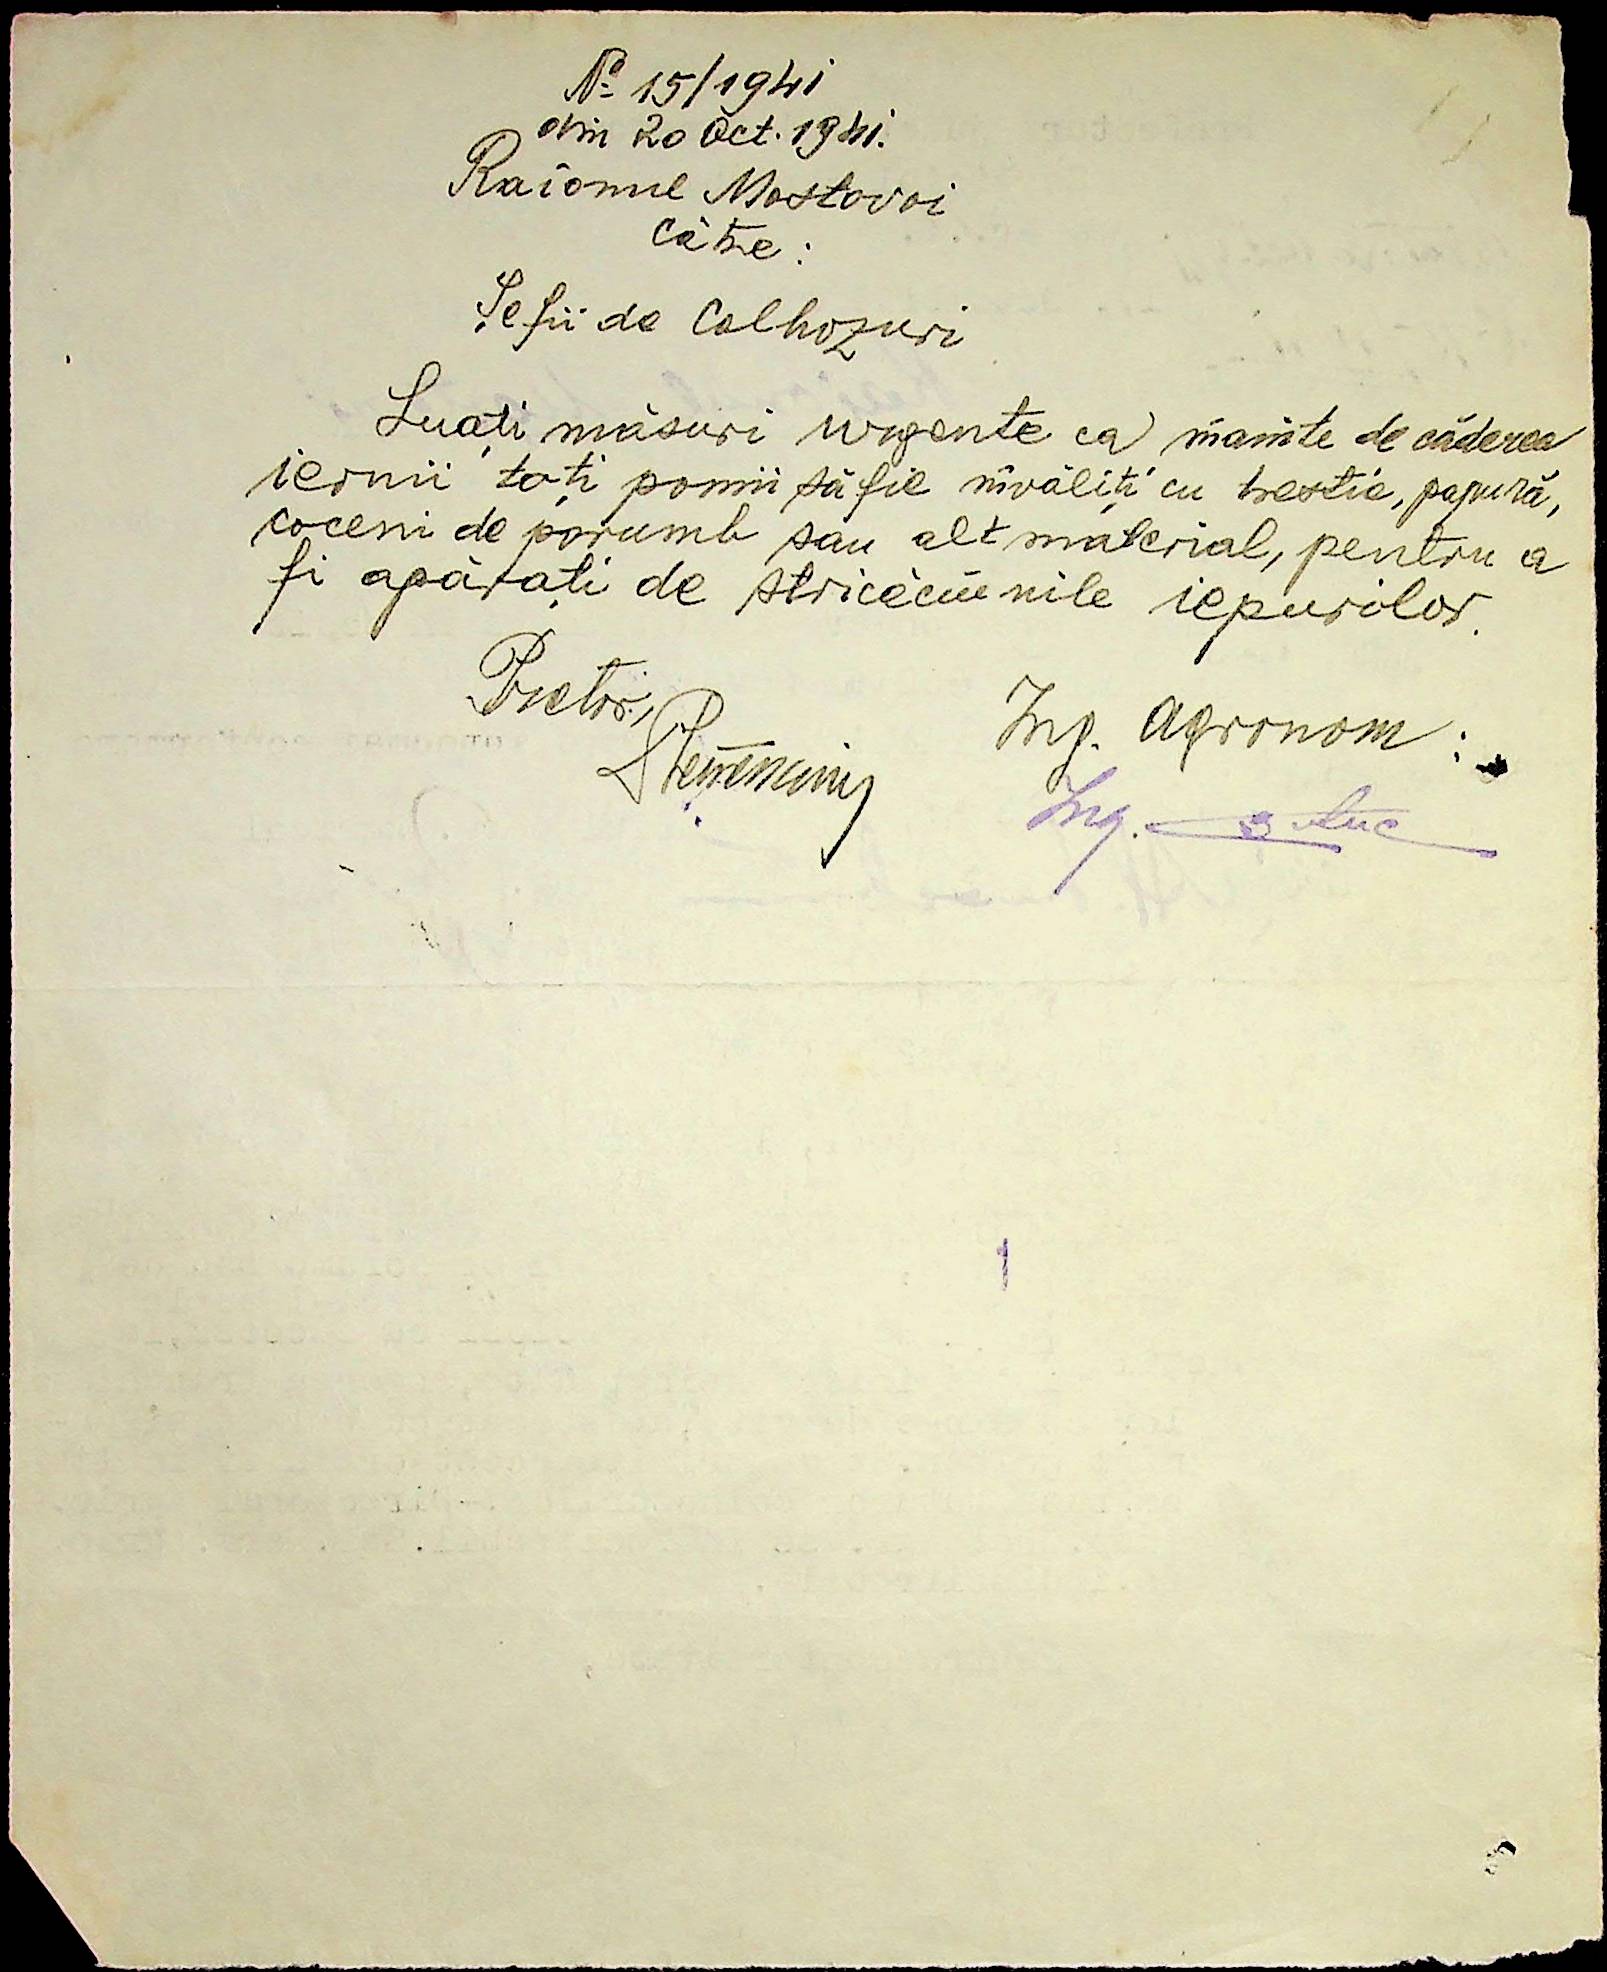 No 15/1941
din 20 Oct. 1941.
Raionul Mostovoi
Către:
Șefii de Colhozuri
Luați măsuri urgente ca înainte de căderea
iernii toți pomii să fie înveliți cu trestie, papură,
coceni de porumb sau alt material, pentru a
fi apărați de stricăciunile iepurilor.
Pretor, Ing. Agronom:
Ing.